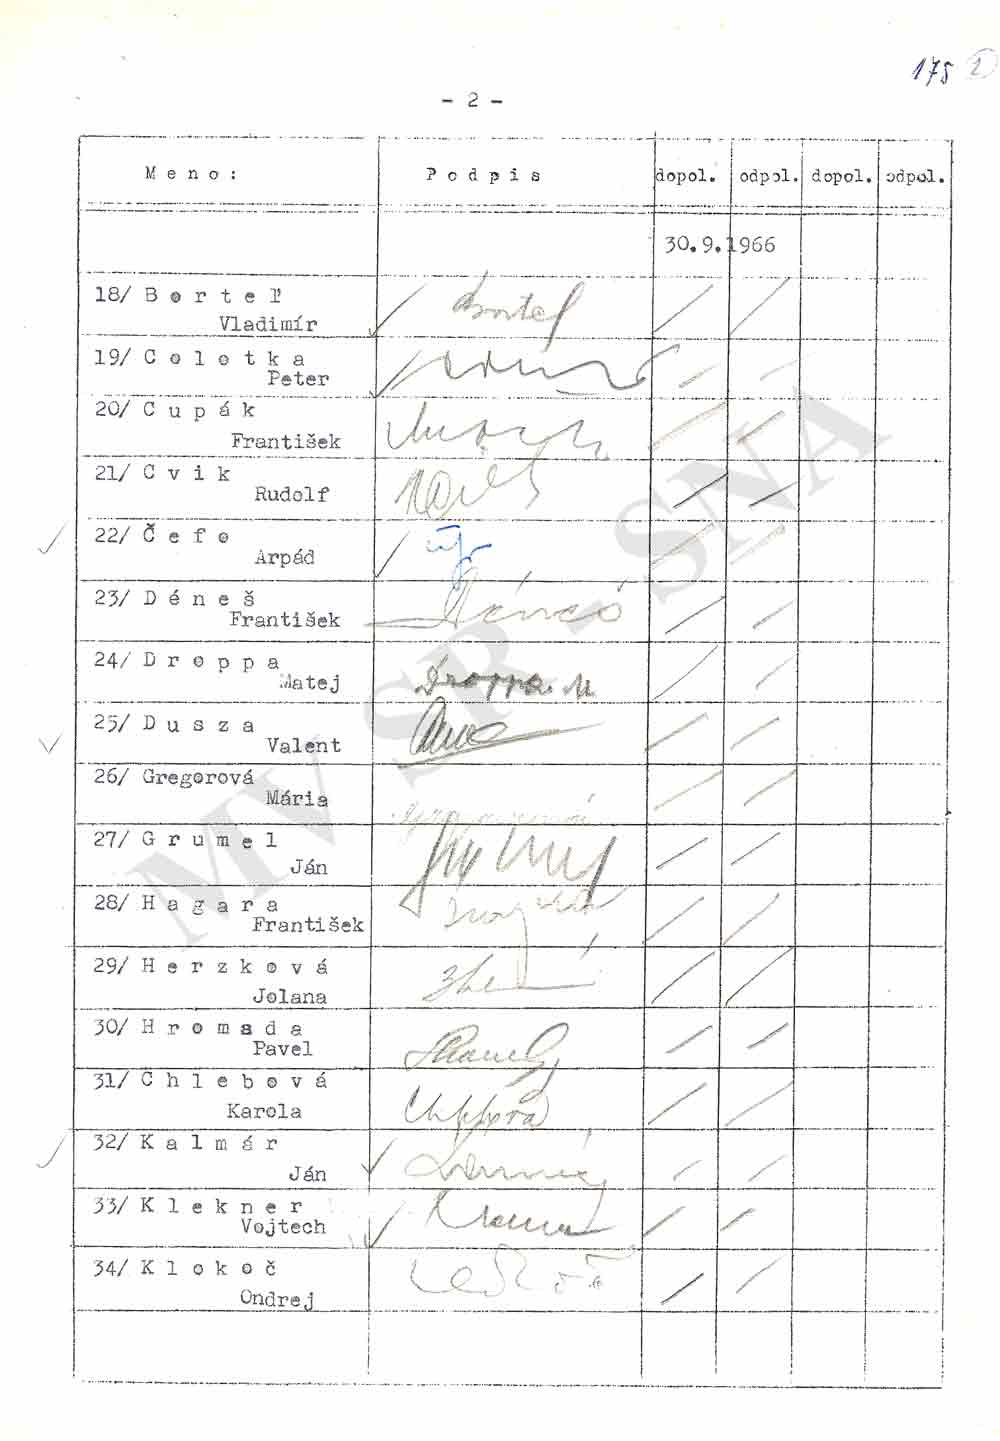 175 2
- 2 -
Meno: Podpis dopol. odpol. dopol. odpol.
30.9.1966
18/ Borteľ
Vladimír
Bortel
19/ Colotka
Peter
20/ Cupák
František
21/ Cvik
Rudolf
22/ Čefo
Arpád
23/ Déneš
František
24/ Droppa
Matej
Droppa M
25/ Dusza
Valent
26/ Gregorová
Mária
Gregorová
27/ Grumel
Ján
28/ Hagara
František
29/ Herzková
Jolana
30/ Hromada
Pavel
31/ Chlebová
Karola
32/ Kalmár
Ján
33/ Klekner
Vojtech
34/ Klokoč
Ondrej
MV SR - SNA